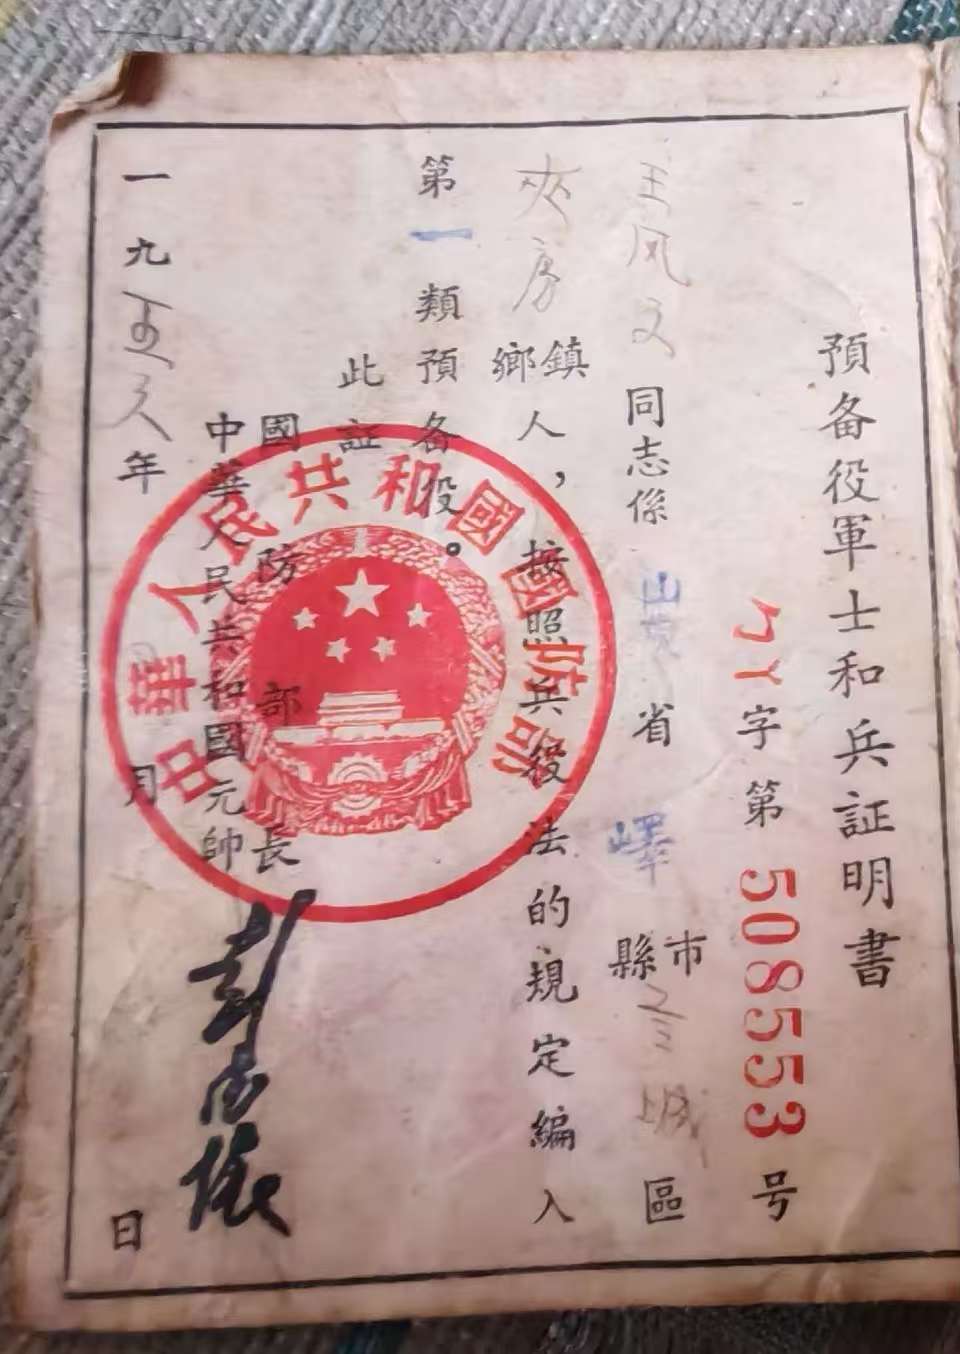 預备役軍士和兵証明書
字第508553号
王风文同志係山東省嶧縣市 城區
夾房鄉鎮人，按照兵役法的規定編入
第一類預备役。
此証
國防部長
中華人民共和國元帥
彭德懷
一九五 年 月 日
中華人民共和國國防部